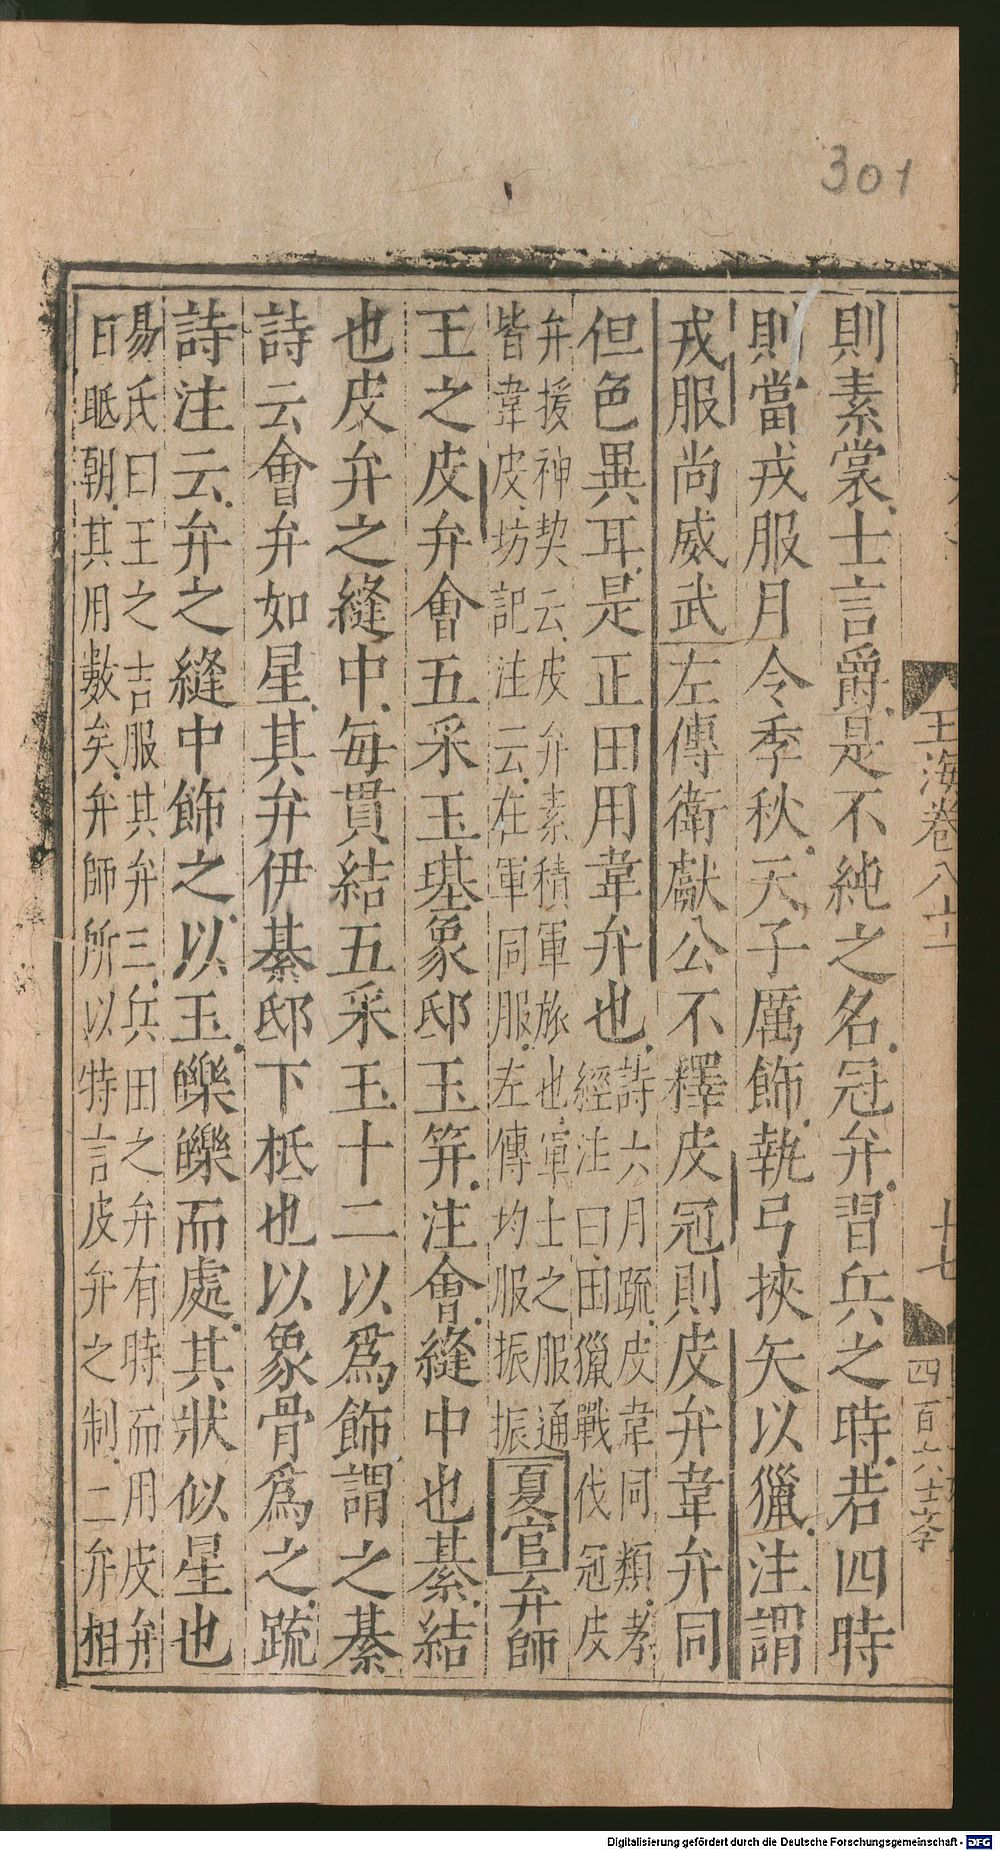 301
則素裳士言爵是不純之名冠弁習兵之時若四時
則當戎服月令季秋天子厲飾執弓挾矢以獵注謂
戎服尚威武左傳衛獻公不釋皮冠則皮弁韋弁同
但色異耳是正田用韋弁也詩六月疏皮韋同類孝
經注曰田獵戰伐冠皮
弁援神契云皮弁素積軍旅也軍士之服通
皆韋皮坊記注云在軍同服左傳均服振振夏官弁師
王之皮弁會五采玉璂象邸玉筓注會縫中也綦結
也皮弁之縫中每貫結五采玉十二以爲飾謂之綦
詩云會弁如星其弁伊綦邸下柢也以象骨爲之疏
詩注云弁之縫中飾之以玉皪皪而處其狀似星也
易氏曰王之吉服其弁三兵田之弁有時而用皮弁
日眡朝其用數矣弁師所以特言皮弁之制二弁相
玉海卷八十
十七
四百六十字
Digitalisierung gefördert durch die Deutsche Forschungsgemeinschaft - DFG